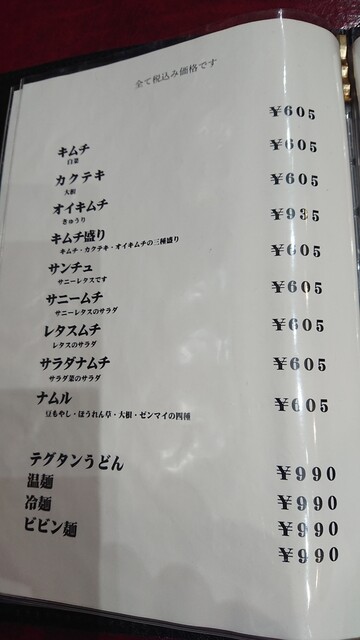 全て税込み価格です
キムチ ¥605
白菜
カクテキ ¥605
大根
オイキムチ ¥605
きゅうり
キムチ盛り ¥935
キムチ・カクテキ・オイキムチの三種盛り
サンチュ ¥605
サニーレタスです
サニームチ ¥605
サニーレタスのサラダ
レタスムチ ¥605
レタスのサラダ
サラダナムチ ¥605
サラダ菜のサラダ
ナムル ¥605
豆もやし・ほうれん草・大根・ゼンマイの四種
テグタンうどん ¥990
温麺 ¥990
冷麺 ¥990
ビビン麺 ¥990